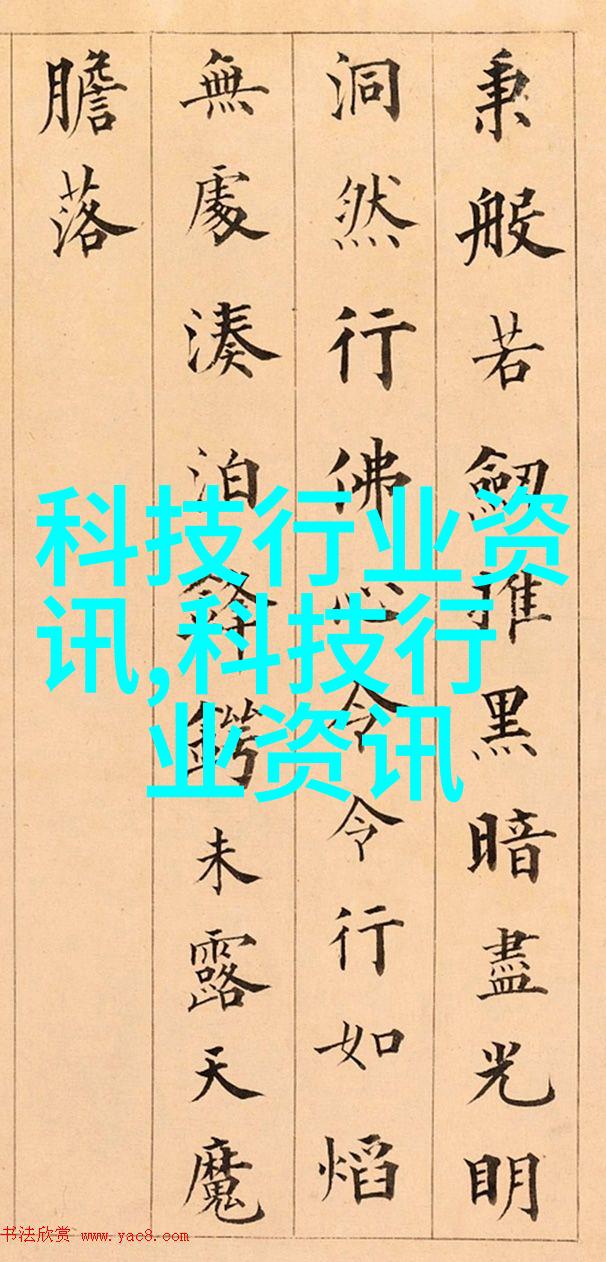 秉般若劒推黑暗盡光明
洞然行佛心令令行如熖
無處湊泊鋒鍔未露天魔
膽落
科技行业资
讯,科技行
业资讯
书法欣赏 www.yac8.com